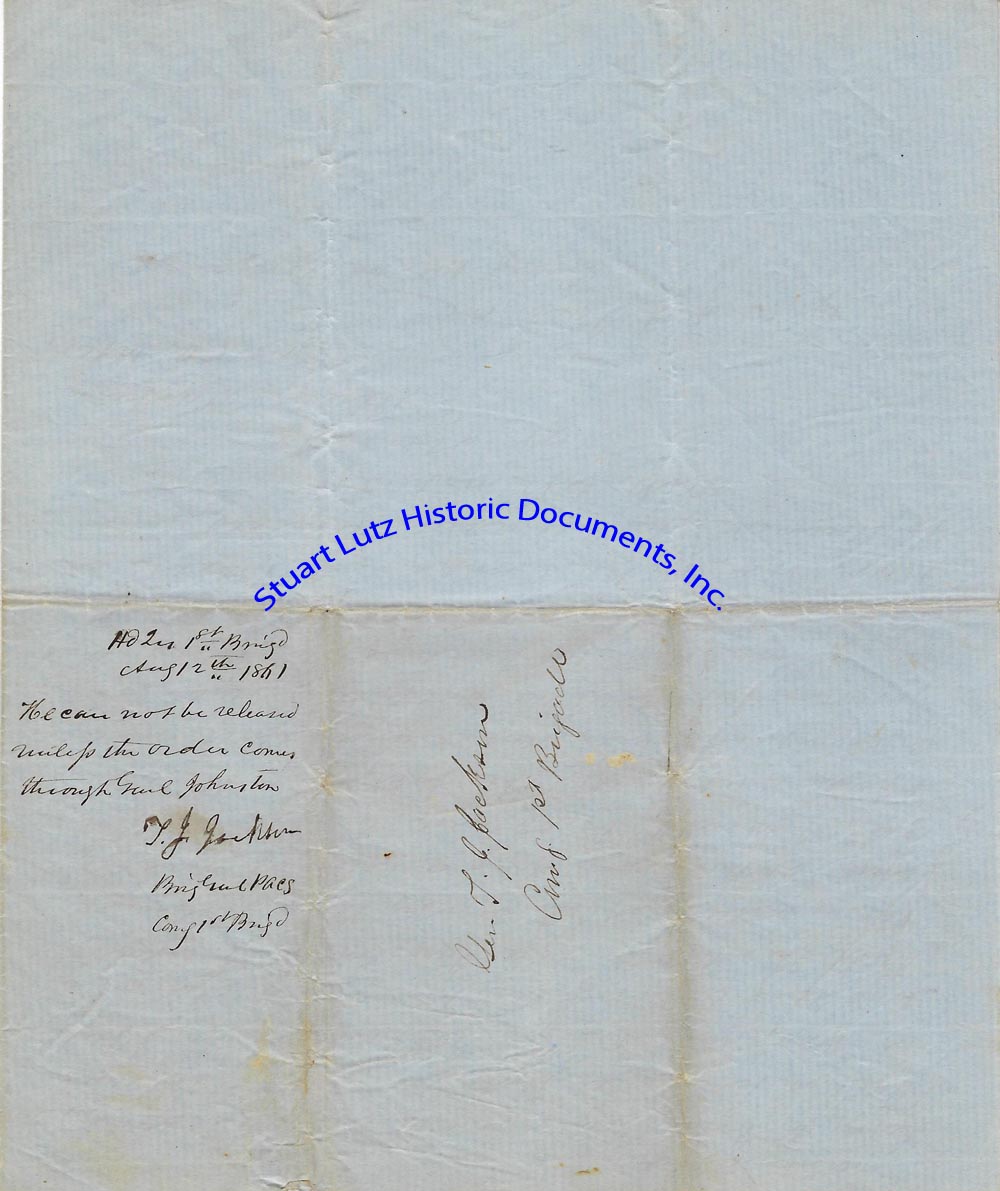 Stuart Lutz Historic Documents, Inc.
Hd Qrs 1st Brigd
Aug 12th 1861
He can not be released
unless the order comes
through Genl Johnston
T. J. Jackson
Brig Genl PACS
Comg 1st Brigd
Gen T. J. Jackson
Comd. 1st Brigade